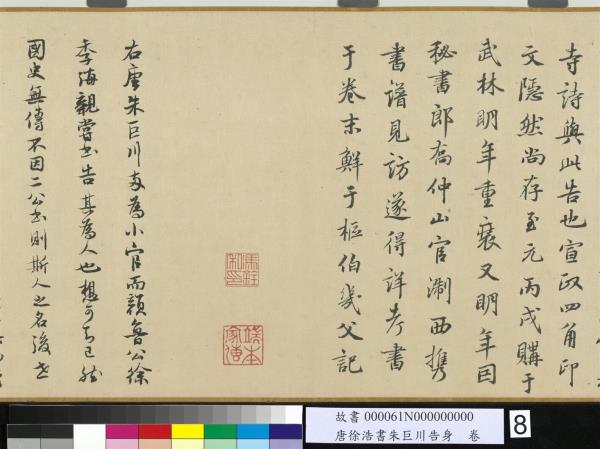 寺詩與此告也宣政四角印
文隱然尚存至元丙戌購于
武林明年重裝又明年因
秘書郎喬仲山官淛西攜
書譜見訪遂得詳考書
于卷末鮮于樞伯幾父記
右唐朱巨川為小官而顏魯公徐
季海親嘗書告其為人也想可知已然
國史無傳不因二公書則斯人之名後世
故書 000061N000000000
唐徐浩書朱巨川告身 卷
8